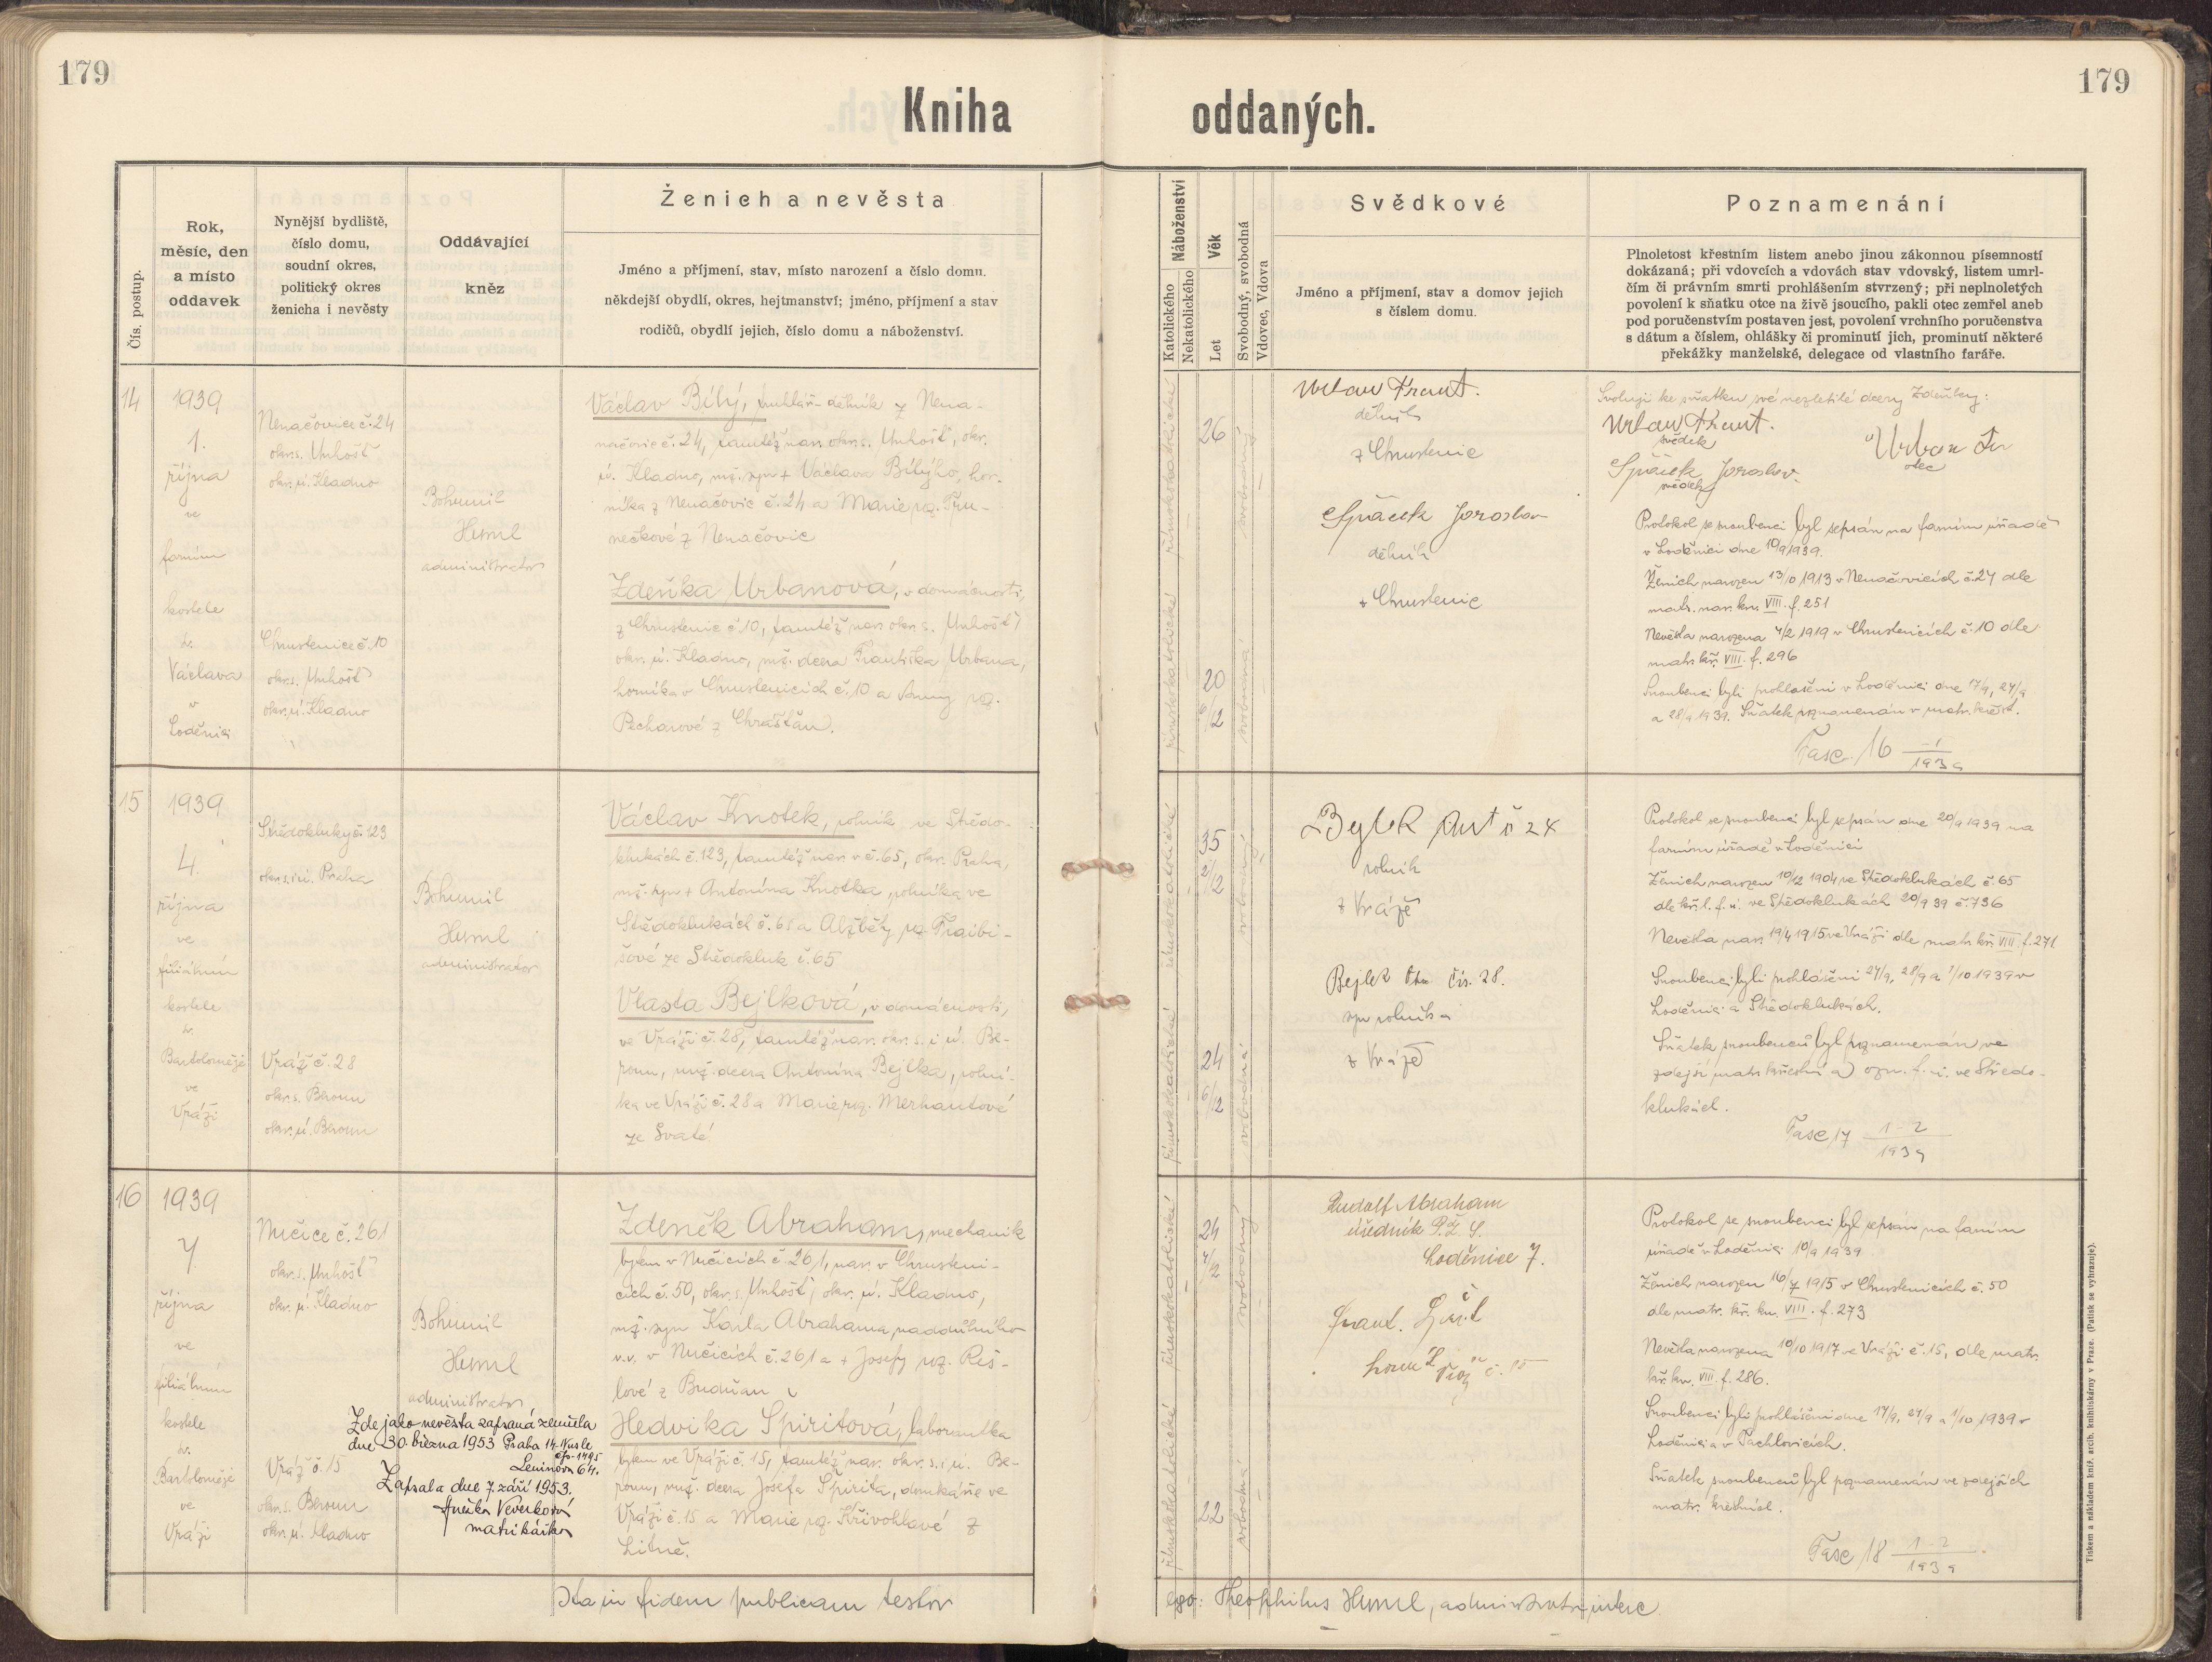 179
179
Kniha
oddaných.
Čís. postup.
Rok,
měsíc, den
a místo
oddavek
Nynější bydliště,
číslo domu,
soudní okres,
politický okres
ženicha i nevěsty
Oddávající
kněz
Ženich a nevěsta
Jméno a příjmení, stav, místo narození a číslo domu,
někdejší obydlí, okres, hejtmanství; jméno, příjmení a stav
rodičů, obydlí jejich, číslo domu a náboženství.
Náboženství
Katolického
Nekatolického
Věk
Let
Svobodný, svobodná
Vdovec, Vdova
Svědkové
Jméno a příjmení, stav a domov jejich
s číslem domu.
Poznamenání
Plnoletost křestním listem anebo jinou zákonnou písemností
dokázaná; při vdovcích a vdovách stav vdovský, listem umrl-
čím či právním smrti prohlášením stvrzený; při neplnoletých
povolení k sňatku otce na živě jsoucího, pakli otec zemřel aneb
pod poručenstvím postaven jest, povolení vrchního poručenstva
s dátum a číslem, ohlášky či prominutí jich, prominutí některé
překážky manželské, delegace od vlastního faráře.
14
1939
1.
října
ve
farním
kostele
sv.
Václava
v
Loděnici
Nenačovice č. 24
okr. s. Unhošť
okr. ú. Kladno
Chrustenice č. 10
okr. s. Unhošť
okr. ú. Kladno
Bohumil
Huml
administrátor
Václav Bílý, truhlář-dělník z Nena-
načovic č. 24, tamtéž nar. okr. s. Unhošť, okr.
ú. Kladno, mž. syn + Václava Bílýho, hor-
níka z Nenačovic č. 24 a Marie roz.
nečkové z Nenačovic
Zdeňka Urbanová, v domácnosti,
z Chrustenic č. 10, tamtéž nar. okr. s. Unhošť,
okr. ú. Kladno, mž. dcera Františka Urbana,
horníka v Chrustenicích č. 10 a Anny roz.
Pechanové z Chrášťan.
římskokatolické
římskokatolické
26
20
6/12
svobodný
svobodná
Urban Frant.
dělník
z Chrustenic
Špaček Jaroslav
dělník
z Chrustenic
Svoluji ke sňatku své nezletilé dcery Zdeňky:
Urban Frant.
svědek
Urban Fr
otec
Špaček Jaroslav
svědek
Protokol se snoubenci byl sepsán na farním úřadě
v Loděnici dne 10/9 1939.
Ženich narozen 13/10 1913 v Nenačovicích č. 24 dle
matr. nar. kn. VIII. f. 251
Nevěsta narozena 4/2 1919 v Chrustenicích č. 10 dle
matr. kř. VIII. f. 296
Snoubenci byli prohlášeni v Loděnici dne 17/9, 24/9
a 28/9 1939. Sňatek poznamenán v matr. křest.
Fasc 16 1/1939
15
1939
4.
října
ve
filiálním
kostele
sv.
Bartoloměje
ve
Vráži
Středokluky č. 123
okr. s. i ú. Praha
Vráž č. 28
okr. s. Beroun
okr. ú. Beroun
Bohumil
Huml
administrátor
Václav Knotek, rolník ve Středo-
klukách č. 123, tamtéž nar. v č. 65, okr. Praha,
mž. syn + Antonína Knotka, rolníka ve
Středoklukách č. 65 a Alžběty roz. Fraibi-
šové ze Středokluk č. 65
Vlasta Bejlková, v domácnosti,
ve Vráži č. 28, tamtéž nar. okr. s. i ú. Be-
roun, mž. dcera Antonína Bejlka, rolní-
ka ve Vráži č. 28 a Marie roz. Merhautové
ze Svaté
římskokatolické
římskokatolické
35
24
6/12
svobodný
svobodná
Bejlek Ant č 28
rolník
z Vráže
Bejlek čís. 28.
syn rolníka
z Vráže
Protokol se snoubenci byl sepsán dne 20/9 1939 na
farním úřadě v Loděnici
Ženich narozen 10/12 1904 ve Středoklukách č. 65
dle kř. l. f. ú. ve Středoklukách 20/9 39 č. 736
Nevěsta nar. 19/4 1915 ve Vráži dle matr. kř. VIII. f. 271.
Snoubenci byli prohlášeni 24/9, 28/9 a 1/10 1939 v
Loděnici a Středoklukách.
Sňatek snoubenců byl poznamenán ve
zdejší matr. křestní a) ozn. f. ú. ve Středo-
klukách.
Fasc 17 1-2/1939
16
1939
7
října
ve
filiálním
kostele
sv.
Bartoloměje
ve
Vráži
Nučice č. 261
okr. s. Unhošť
okr. ú. Kladno
Vráž č. 15
okr. s. Beroun
okr. ú. Kladno
Bohumil
Huml
administrátor
Zde jako nevěsta zapsaná zemřela
dne 30. března 1953 Praha 14-Nusle
čp. 1495
Leninova 64.
Zapsala dne 7. září 1953.
Anežka Veverková
matrikářka
Zdeněk Abraham, mechanik
bytem v Nučicích č. 261, nar. v Chrusteni-
cích č. 50, okr. s. Unhošť, okr. ú. Kladno,
mž. syn Karla Abrahama, naddůlního
v. v. v Nučicích č. 261 a + Josefy roz. Reš-
lové z Budňan
Hedvika Spiritová, laborantka
bytem ve Vráži č. 15, tamtéž nar. okr. s. i ú. Be-
roun, mž. dcera Josefa Špirita, domkáře ve
Vráži č. 15 a Marie roz. Křivohlavé z
Litně.
římskokatolické
římskokatolické
24
22
svobodný
svobodná
Rudolf Abraham
úředník P.Ž.S.
Loděnice 7.
Frant.
č. 15
Protokol se snoubenci byl sepsán na farním
úřadě v Loděnici 10/9 1939
Ženich narozen 16/7 1915 v Chrustenicích č. 50
dle matr. kř. kn. VIII. f. 273
Nevěsta narozena 10/10 1917 ve Vráži č. 15, dle matr.
kř. kn. VIII. f. 286.
Snoubenci byli prohlášeni dne 17/9, 24/9 a 1/10 1939 v
Loděnici a v Tachlovicích.
Sňatek snoubenců byl poznamenán ve zdejších
matr. křestních.
Fasc 18 1-2/1939
Ita in fidem publicam testor
ego: Theophilus Huml, administrator interc.
Tiskem a nákladem kníž. arcib. knihtiskárny v Praze. (Patisk se vyhrazuje).